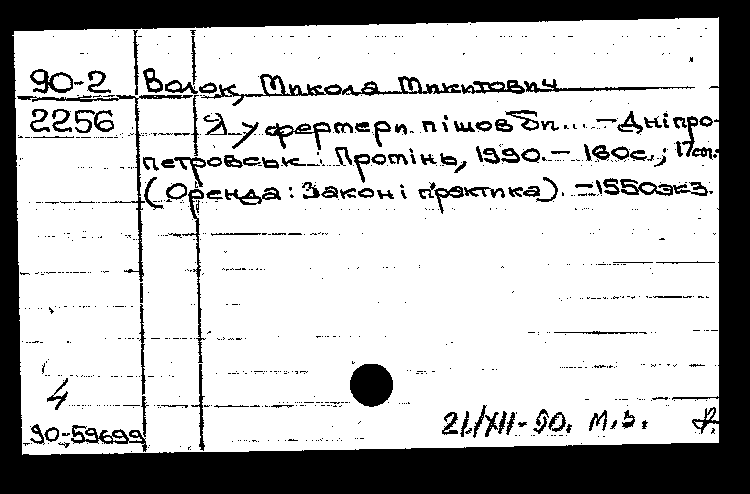 90-2 Волок, Микола Микитович
2256 Я у фермери пішов би... — Дніпро-
петровськ : Промінь, 1990. — 160с.; 17см.
(Оренда: Закон і практика). — 1550экз.
4
90-59699 21/XII-90. м.з.